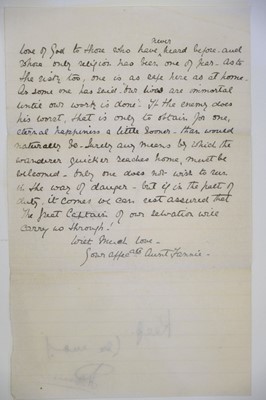 never
love of God to those who have heard before. and
whose only religion has been one of fear. As to
the risk, too, one is as safe here as at home.
As some one has said. Our lives are immortal
until our work is done. If the enemy does
his worst, that is only to obtain for one,
eternal happiness a little sooner than would
naturally be. Surely any means by which the
wanderer quicker reaches home, must be
welcomed. Only one does not wish to run
in the way of danger - but if in the path of
duty, it comes we can rest assured that
The Great Captain of our salvation will
carry us through!
With Much love -
Your affecate Aunt Fannie -